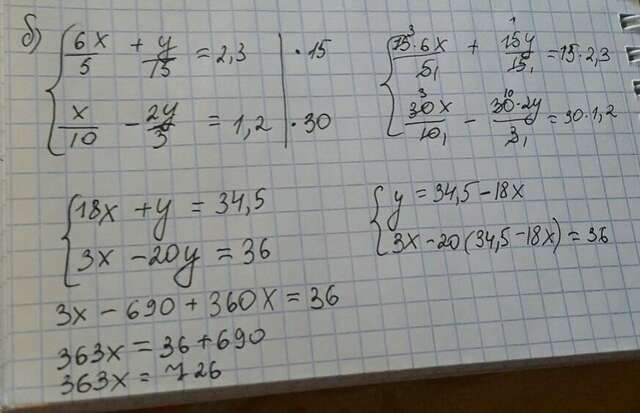 б) { 6x/5 + y/15 = 2,3 | · 15
x/10 − 2y/3 = 1,2 | · 30
{ 15·6x/5 + 15y/15 = 15·2,3
30x/10 − 30·2y/3 = 30·1,2
{ 18x + y = 34,5
3x − 20y = 36
{ y = 34,5 − 18x
3x − 20(34,5 − 18x) = 36
3x − 690 + 360x = 36
363x = 36 + 690
363x = 726